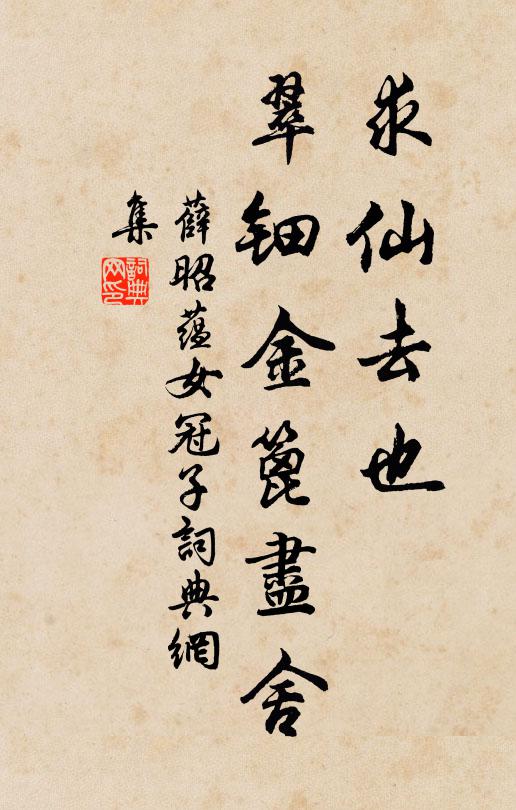 求仙去也
翠鈿金篦盡舍
薛昭蘊女冠子詞典網
集
詞典
网印